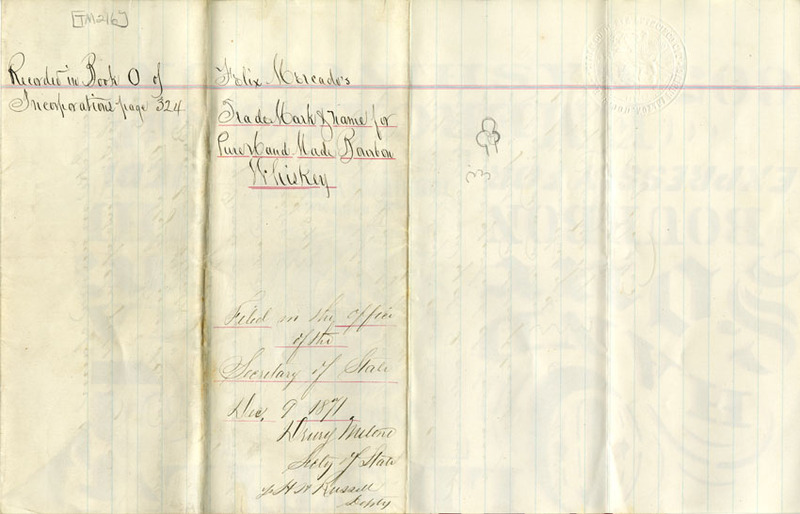 [TM216]
Recorded in Book O of
Incorporations page 324
Felix Mercado's
Trade Mark & name for
Pure Hand Made Bourbon
Whiskey
Filed in the office
of the
Secretary of State
Dec. 9 1871
Drury Melone
Secty of State
H A Russell
Depty